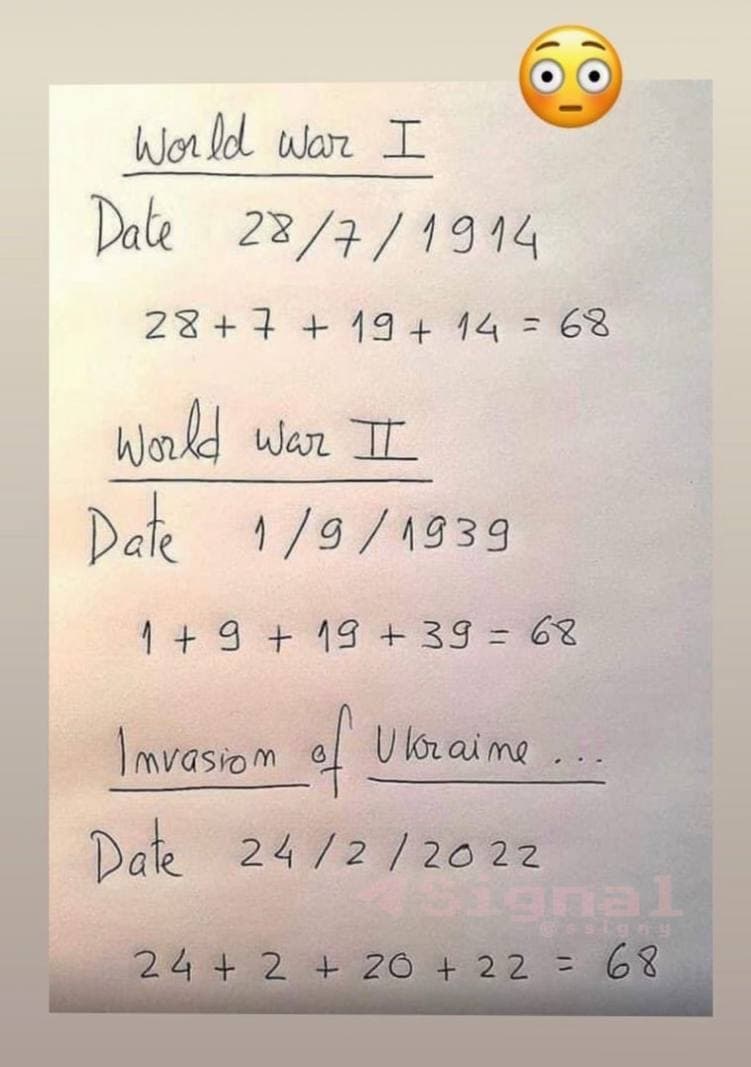 World War I
Date 28/7/1914
28 + 7 + 19 + 14 = 68
World War II
Date 1/9/1939
1 + 9 + 19 + 39 = 68
Invasion of Ukraine ...
Date 24/2/2022
Signal
@ssigny
24 + 2 + 20 + 22 = 68